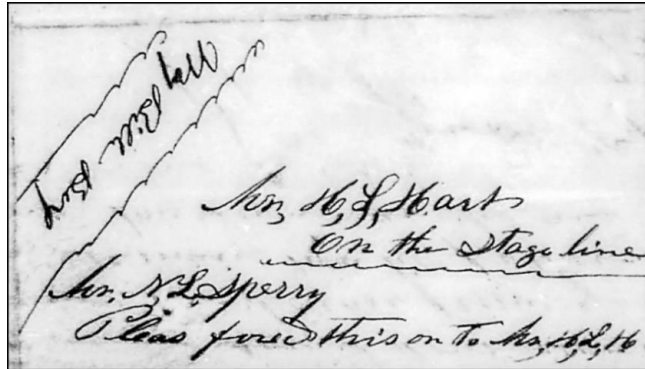 Way Bill
Mr, H, L, Hart
On the Stage line
Mr. N. L. Sperry
Pleas fored this on To Mr, H, L, H